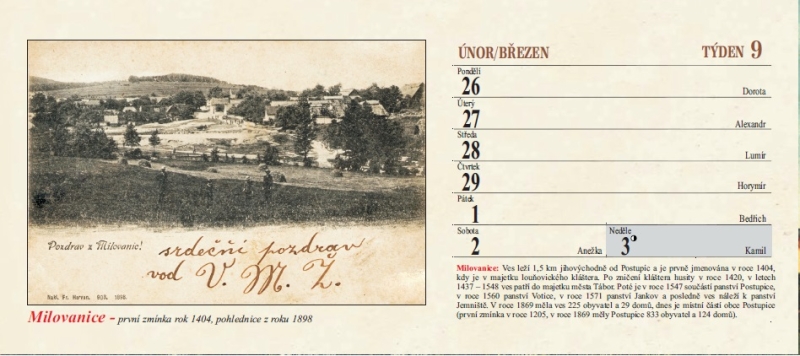 Pozdrav z Milovanic!
srdeční pozdrav
vod V. M. Ž.
1898.
Milovanice - první zmínka rok 1404, pohlednice z roku 1898
ÚNOR/BŘEZEN TÝDEN 9
Pondělí
26 Dorota
Úterý
27 Alexandr
Středa
28 Lumír
Čtvrtek
29 Horymír
Pátek
1 Bedřich
Sobota
2 Anežka
Neděle
3 Kamil
Milovanice: Ves leží 1,5 km jihovýchodně od Postupic a je prvně jmenována v roce 1404,
kdy je v majetku louňovického kláštera. Po zničení kláštera husity v roce 1420, v letech
1437 – 1548 ves patří do majetku města Tábor. Poté je v roce 1547 součástí panství Postupice,
v roce 1560 panství Votice, v roce 1571 panství Jankov a posledně ves náleží k panství
Jemniště. V roce 1869 měla ves 225 obyvatel a 29 domů, dnes je místní částí obce Postupice
(první zmínka v roce 1205, v roce 1869 měly Postupice 833 obyvatel a 124 domů).